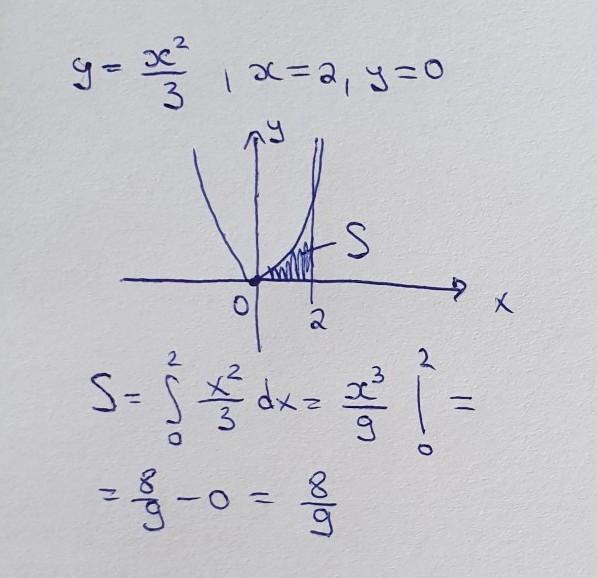 y = x²/3 , x = 2, y = 0
y
S
0
2
x
S = ∫₀² x²/3 dx = x³/9 |₀² =
= 8/9 − 0 = 8/9